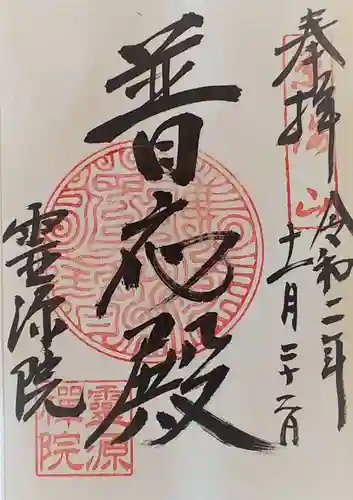 奉拝
令和二年
十一月二十二日
普応殿
霊源院
靈源
禪院